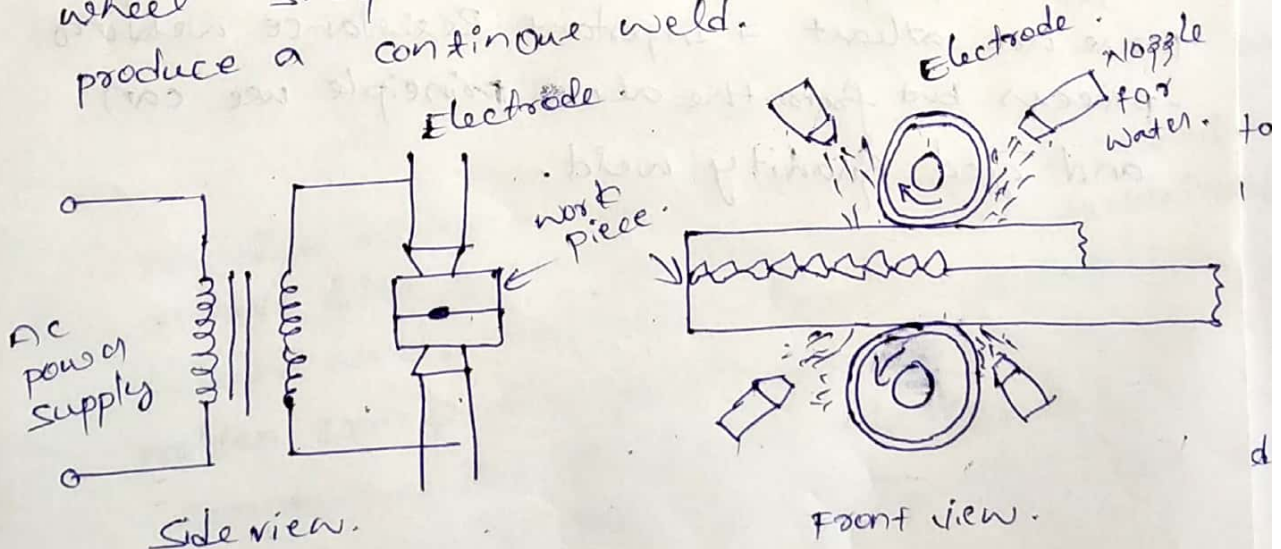 wheel
produce a continoue weld.
Electrode.
Electrode.
Nozzle
for
water.
to
work
piece.
AC
power
supply
d
Side view.
Front view.